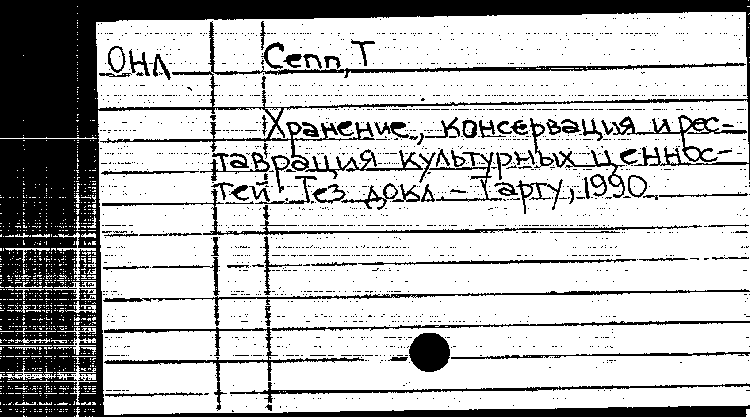 ОНЛ Сепп, Т
Хранение, консервация и рес-
таврация культурных ценнос-
тей: Тез. докл. – Тарту, 1990.